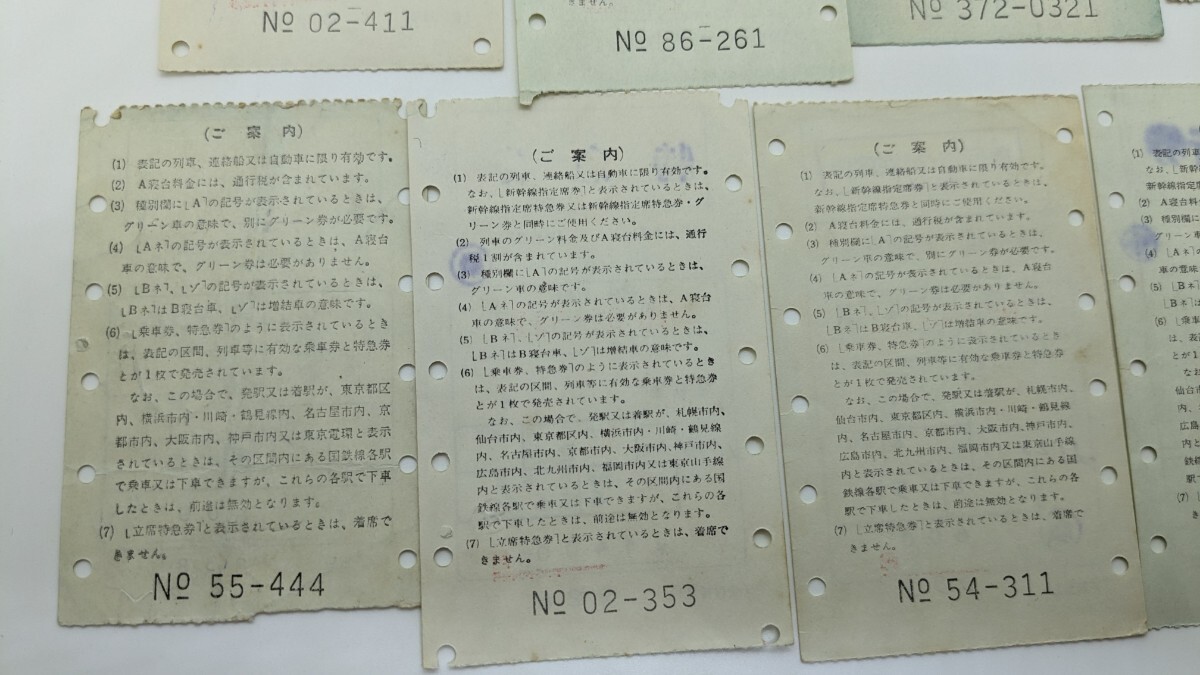 きません。
№ 02-411
№ 86-261
№ 372-0321
(ご 案 内)
(1) 表記の列車、連絡船又は自動車に限り有効です。
(2) A寝台料金には、通行税が含まれています。
(3) 種別欄に[A]の記号が表示されているときは、
グリーン車の意味で、別にグリーン券が必要です。
(4) [Aネ]の記号が表示されているときは、A寝台
車の意味で、グリーン券は必要がありません。
(5) [Bネ]、[ゾ]の記号が表示されているときは、
[BネはB寝台車、[ゾ]は増結車の意味です。
(6) [乗車券、特急券]のように表示されているとき
は、表記の区間、列車等に有効な乗車券と特急券
とが1枚で発売されています。
なお、この場合で、発駅又は着駅が、東京都区
内、横浜市内・川崎・鶴見線内、名古屋市内、京
都市内、大阪市内、神戸市内又は東京電環と表示
されているときは、その区間内にある国鉄線各駅
で乗車又は下車できますが、これらの各駅で下車
したときは、前途は無効となります。
(7) [立席特急券]と表示されているときは、着席で
きません。
№ 55-444
(ご 案 内)
(1) 表記の列車、連絡船又は自動車に限り有効です。
なお、[新幹線指定席券]と表示されているときは、
新幹線指定席特急券又は新幹線指定席特急券・グ
リーン券と同時にご使用ください。
(2) 列車のグリーン料金及びA寝台料金には、通行
税1割が含まれています。
(3) 種別欄に[A]の記号が表示されているときは、
グリーン車の意味です。
(4) [Aネ]の記号が表示されているときは、A寝台
車の意味で、グリーン券は必要がありません。
(5) [Bネ]、[ゾ]の記号が表示されているときは、
[BネはB寝台車、[ゾ]は増結車の意味です。
(6) [乗車券、特急券]のように表示されているとき
は、表記の区間、列車等に有効な乗車券と特急券
とが1枚で発売されています。
なお、この場合で、発駅又は着駅が、札幌市内、
仙台市内、東京都区内、横浜市内・川崎・鶴見線
内、名古屋市内、京都市内、大阪市内、神戸市内、
広島市内、北九州市内、福岡市内又は東京山手線
内と表示されているときは、その区間内にある国
鉄線各駅で乗車又は下車できますが、これらの各
駅で下車したときは、前途は無効となります。
(7) [立席特急券]と表示されているときは、着席で
きません。
№ 02-353
(ご 案 内)
(1) 表記の列車、連絡船又は自動車に限り有効です。
なお、[新幹線指定席券]と表示されているときは、
新幹線指定席特急券と同時にご使用ください。
(2) A寝台料金には、通行税が含まれています。
(3) 種別欄に[A]の記号が表示されているときは、
グリーン車の意味で、別にグリーン券が必要です。
(4) [Aネ]の記号が表示されているときは、A寝台
車の意味で、グリーン券は必要がありません。
(5) [Bネ]、[ゾ]の記号が表示されているときは、
[BネはB寝台車、[ゾ]は増結車の意味です。
(6) [乗車券、特急券]のように表示されているとき
は、表記の区間、列車等に有効な乗車券と特急券
とが1枚で発売されています。
なお、この場合で、発駅又は着駅が、札幌市内、
仙台市内、東京都区内、横浜市内・川崎・鶴見線
内、名古屋市内、京都市内、大阪市内、神戸市内、
広島市内、北九州市内、福岡市内又は東京山手線
内と表示されているときは、その区間内にある国
鉄線各駅で乗車又は下車できますが、これらの各
駅で下車したときは、前途は無効となります。
(7) [立席特急券]と表示されているときは、着席で
きません。
№ 54-311
(1) 表記の列車
なお、[新
新幹線指定
(2) A寝台料
(3) 種別欄に
グリーン車
(4) [Aネ]の
車の意味
(5) [Bネ]
[Bネ]は
(6) [乗車
は、表記
とが1
なお
仙台市
内、名
広島市
内と
鉄線
駅で
(7)